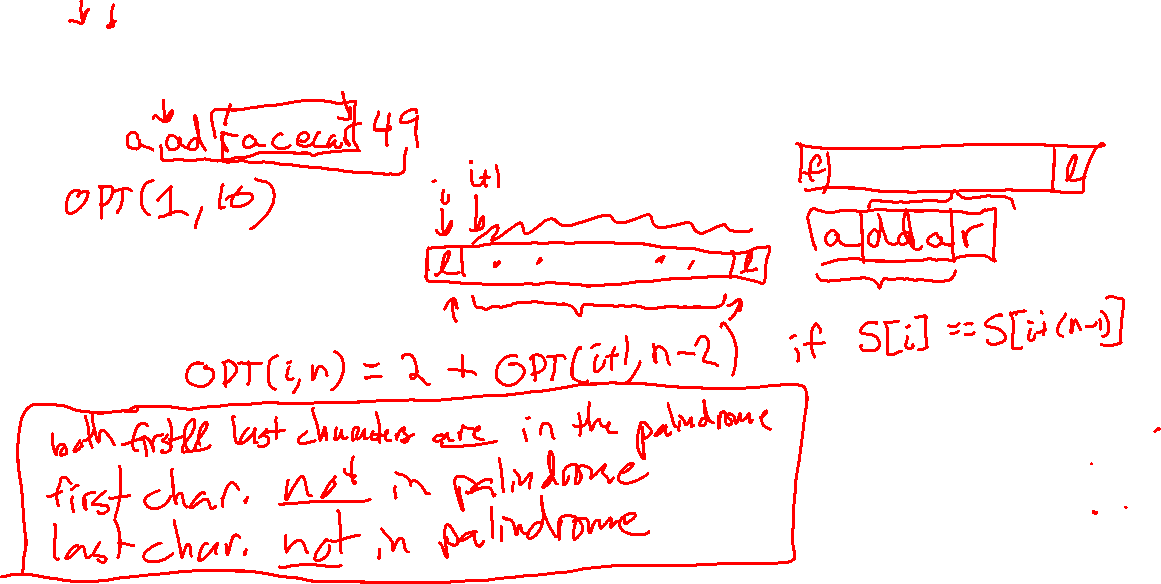 a ad racecar 49
OPT(1, 10)
i i+1
f l
a d d a r
l . . . . l
OPT(i, n) = 2 + OPT(i+1, n-2) if S[i] == S[i+(n-1)]
both first & last characters are in the palindrome
first char. not in palindrome
last char. not in palindrome